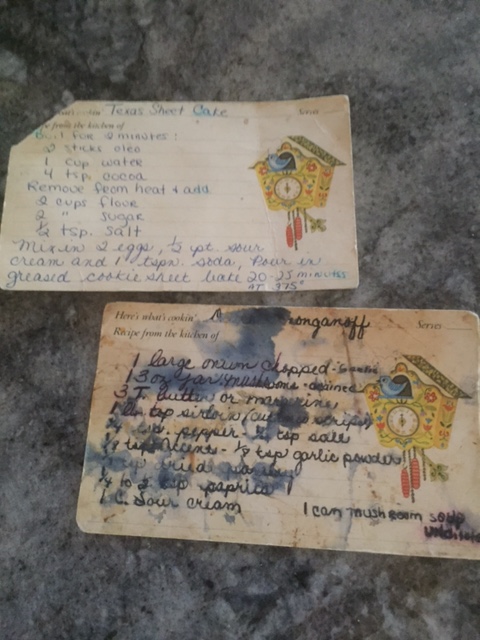 cookin' Texas Sheet Cake Serves
from the kitchen of
Boil for 2 minutes:
2 sticks oleo
1 cup water
4 tsp. cocoa
Remove from heat & add
2 cups flour
2 " sugar
½ tsp. salt
Mix in 2 eggs, ½ pt. sour
cream and 1 tspn. soda, Pour in
greased cookie sheet bake 20-25 minutes
AT 375°
Here's what's cookin' onganoff Serves
Recipe from the kitchen of
1 large onion chopped
1 3 oz jar mushrooms drained
3 T. butter or margarine
1 top sirloin strips
pepper tsp salt
tsp ⅛ tsp garlic powder
dried
to 2 tsp paprika
1 C. Sour cream
1 can mushroom soup